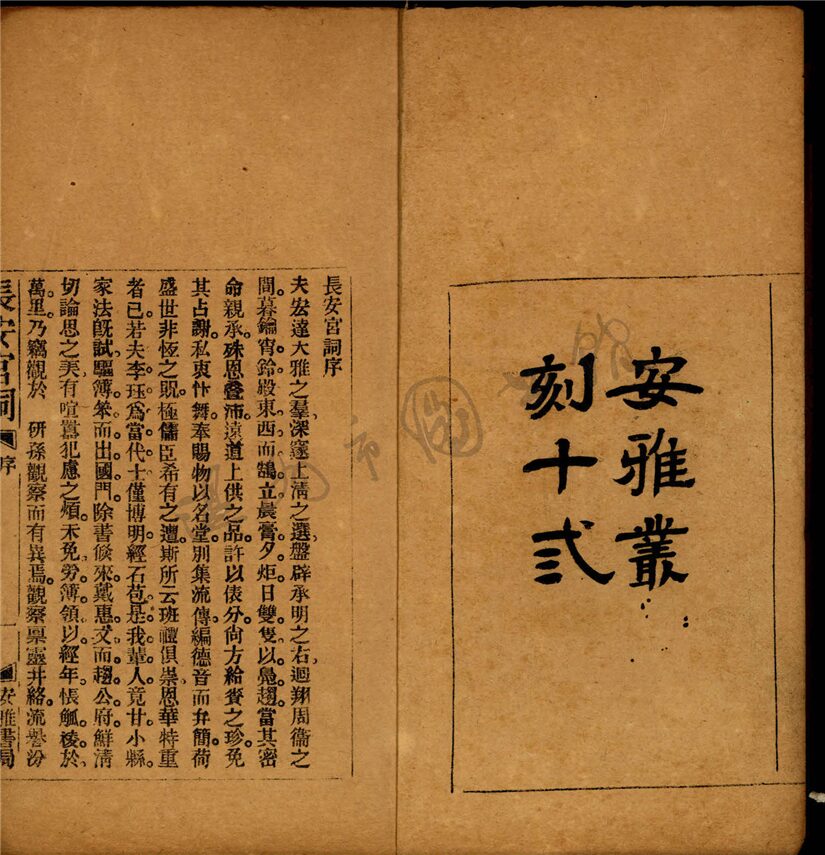 安雅叢
刻十弍
長安宮詞序
夫宏達大雅之羣深窺上清之選盤辟承明之右迴翔周衞之
間暮鑰宵鈴殿東西而鵠立晨膏夕炬日雙隻以鳧趨當其密
命親承殊恩疊沛遠道上供之品許以俵分尙方給賚之珍免
其占謝私衷忭舞奉賜物以名堂別集流傳編德音而弁簡荷
盛世非恆之貺極儒臣希有之遭斯所云班禮俱崇恩華特重
者已若夫李珏爲當代士僅博明經石苞是我輩人竟甘小縣
家法旣試驅簿笨而出國門除書倏來戴惠文而趨公府鮮清
切論思之美有喧囂犯慮之煩未免勞簿領以經年悵觚棱於
萬里乃竊觀於 研孫觀察而有異焉觀察稟靈井絡流譽汾
長安宮詞
序
一
安雅書局